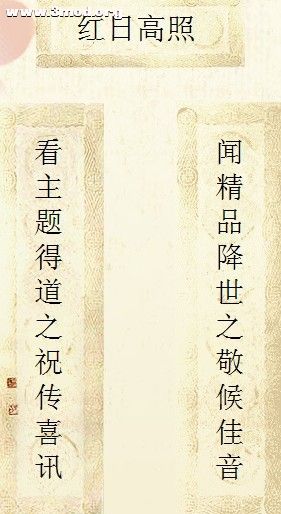 www.3mod.org
红日高照
闻精品降世之敬候佳音
看主题得道之祝传喜讯